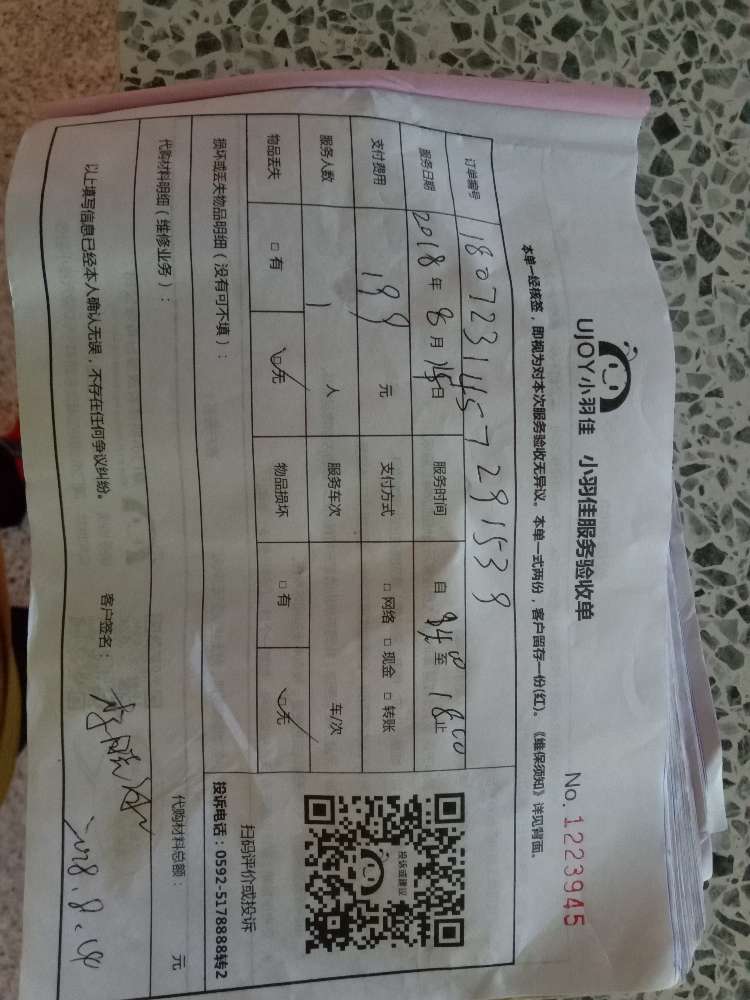 UJOY小羽佳 小羽佳服务验收单
No. 1223945
本单一经核签，即视为对本次服务验收无异议。本单一式两份，客户留存一份(红)。《维保须知》详见背面。
订单编号 180723145729153 9
服务日期 2018年8月 日 服务时间 自 至 1800止
支付费用 199 元 支付方式 □ 网络 □ 现金 □ 转账
服务人数 1 人 服务车次 车/次
物品丢失 □ 有 ☑无 物品损坏 □ 有 ☑无
投诉或建议
扫码评价或投诉
投诉电话：0592-5178888转2
损坏或丢失物品明细（没有可不填）：
代购材料明细（维修业务）： 代购材料总额： 元
以上填写信息已经本人确认无误，不存在任何争议纠纷。 客户签名：